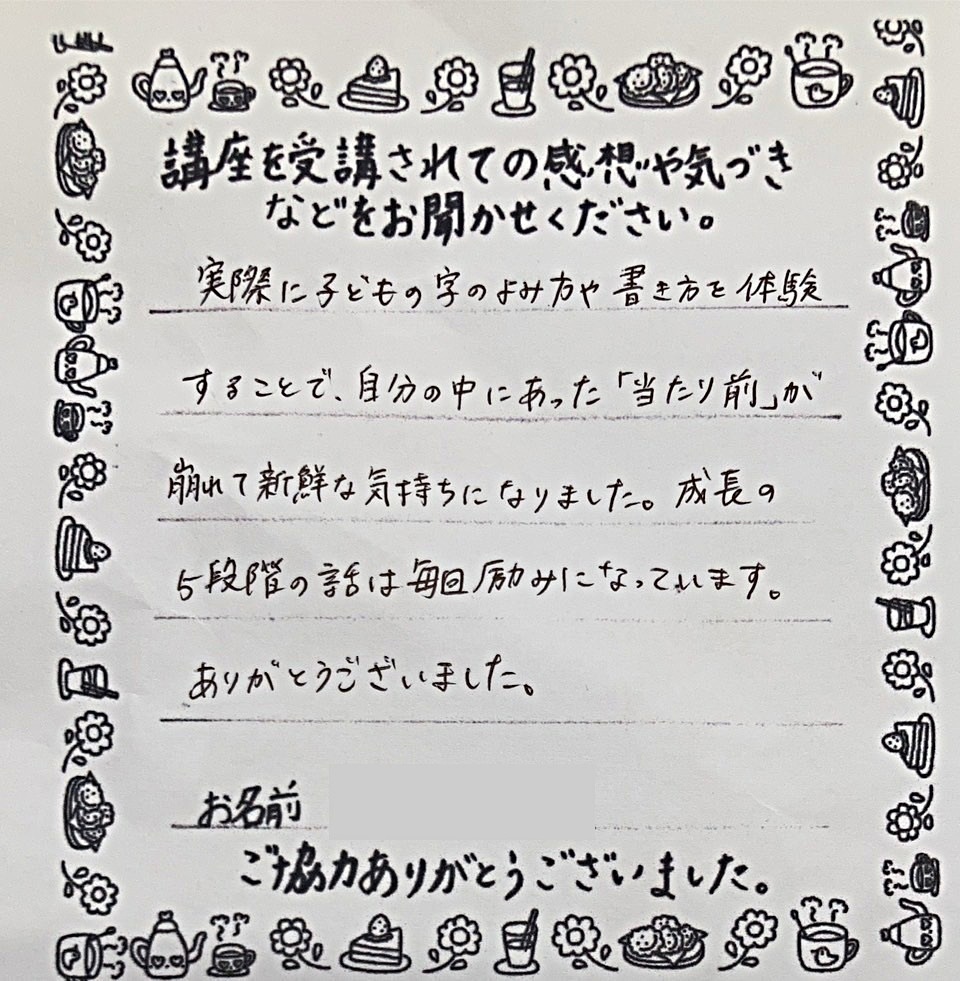 講座を受講されての感想や気づき
などをお聞かせください。
実際に子どもの字のよみ方や書き方を体験
することで、自分の中にあった「当たり前」が
崩れて新鮮な気持ちになりました。成長の
5段階の話は毎回励みになっています。
ありがとうございました。
お名前
ご協力ありがとうございました。